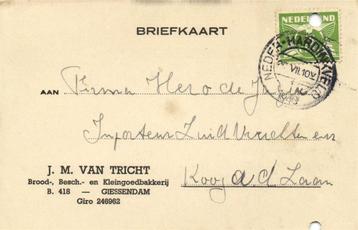 BRIEFKAART
NEDERLAND
NEDER-HARDINXVELD
VII.10
AAN Firma Hero de
Import en Zuidvruchten en
Kooy a.d. Zaan
J. M. VAN TRICHT
Brood-, Besch.- en Kleingoedbakkerij
B. 418 — GIESSENDAM
Giro 246962